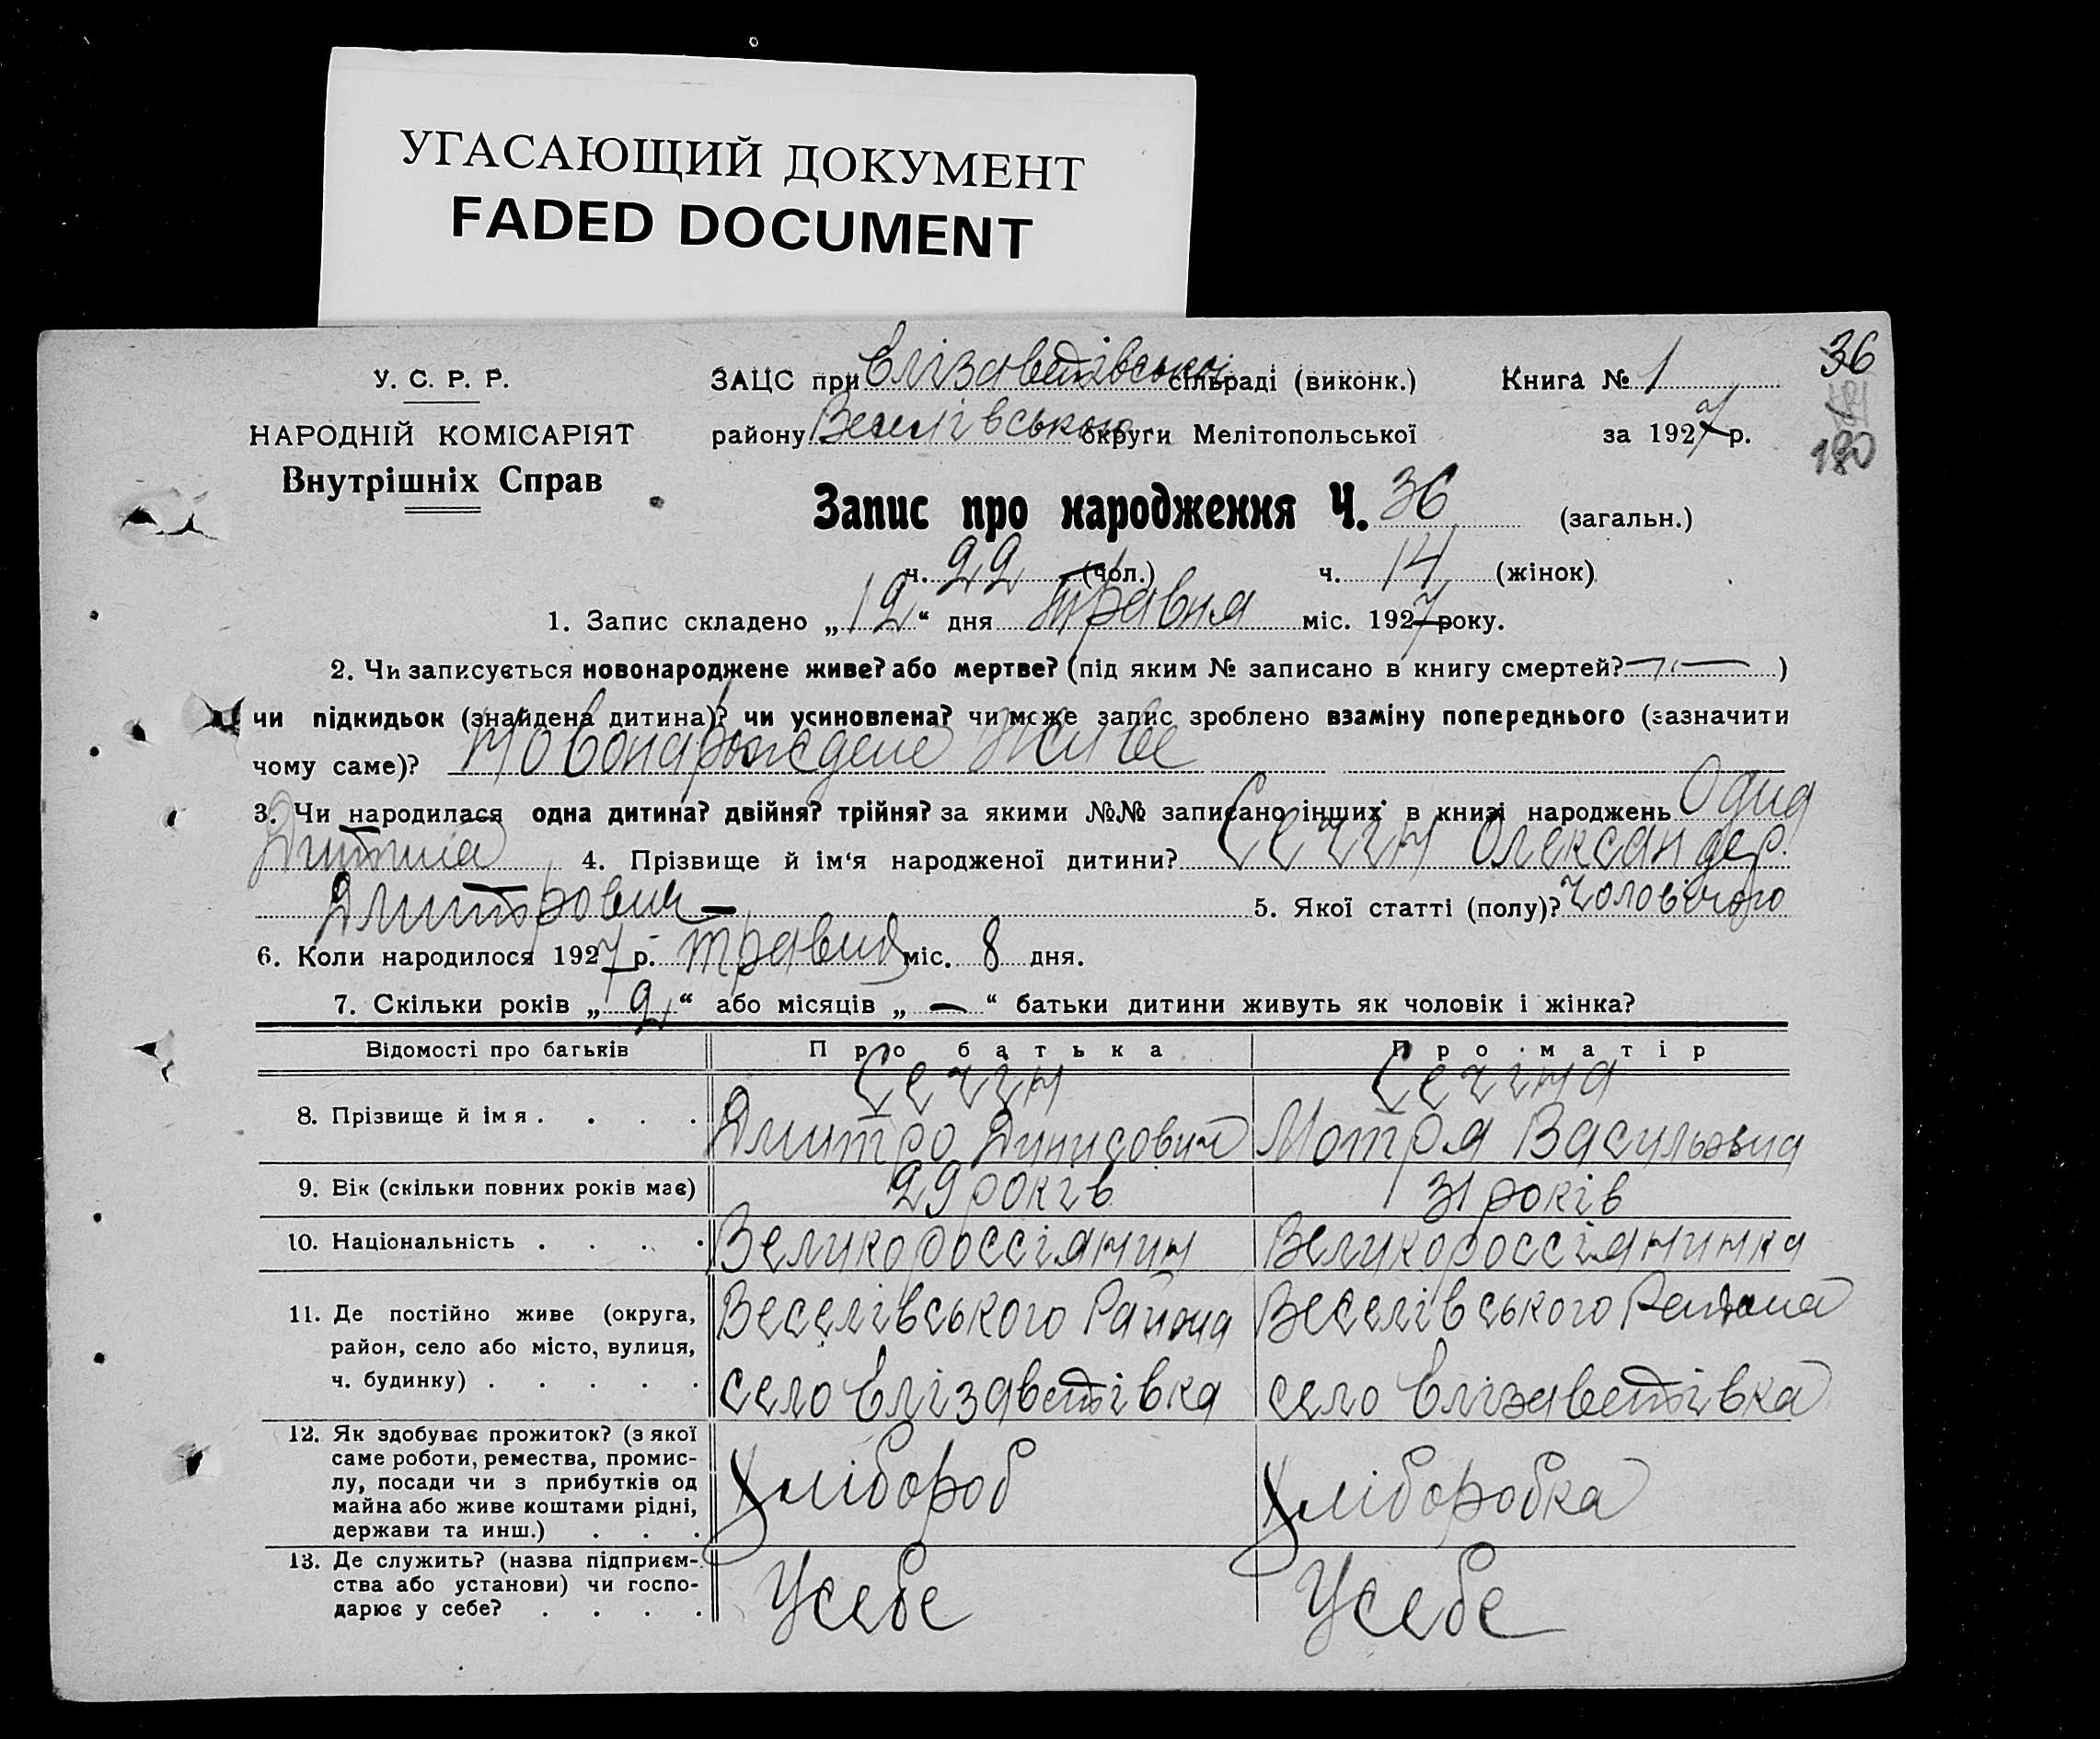 УГАСАЮЩИЙ ДОКУМЕНТ
FADED DOCUMENT
36
У. С. Р. Р.
НАРОДНІЙ КОМІСАРІЯТ
Внутрішніх Справ
ЗАЦС при Єлізаветівської сільраді (виконк.) Книга № 1
району Веселівською округи Мелітопольської за 1927 р.
180
Запис про народження Ч. 36 (загальн.)
ч. 22 (чол.) ч. 14 (жінок)
1. Запис складено „12“ дня травня міс. 1927 року.
2. Чи записується новонароджене живе? або мертве? (під яким № записано в книгу смертей? — )
чи підкидьок (знайдена дитина)? чи усиновлена? чи може запис зроблено взаміну попереднього (зазначити
чому саме)? Новонарождене Живе
3. Чи народилася одна дитина? двійня? трійня? за якими №№ записано інших в книзі народжень Одна
Дитина 4. Прізвище й ім‘я народженої дитини? Сечін Олександер
Дмитрович — 5. Якої статті (полу)? Чоловічого
6. Коли народилося 1927 р. травня міс. 8 дня.
7. Скільки років „2“ або місяців „—“ батьки дитини живуть як чоловік і жінка?
Відомості про батьків Про батька Про матір
8. Прізвище й імя . . . . Сечін Дмитро Динисович Сечіна Мотря Васильовна
9. Вік (скільки повних років має) 29 років 31 років
10. Національність . . . . Великороссіянин Великороссіянинка
11. Де постійно живе (округа, Веселівського Района Веселівського Района
район, село або місто, вулиця,
ч. будинку) . . . . . село Єлізаветівка село Єлізаветівка
12. Як здобуває прожиток? (з якої
саме роботи, ремества, промис-
лу, посади чи з прибутків од Хлібороб Хліборобка
майна або живе коштами рідні,
держави та инш.) . . .
13. Де служить? (назва підприєм-
ства або установи) чи госпо- Усебе Усебе
дарює у себе? . . . .